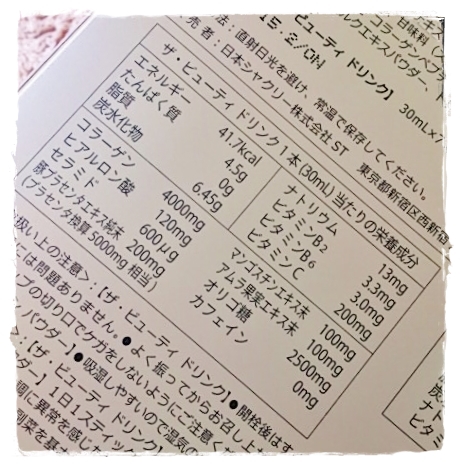 甘味料(
コラーゲンペプ
ルクエキスパウダー、
ビューティ ドリンク】 30mL×7
15. 2/ON
法:直射日光を避け、常温で保存してください。
売者:日本シャクリー株式会社ST 東京都新宿区西新宿
ザ・ビューティ ドリンク1本(30mL)当たりの栄養成分
エネルギー 41.7kcal
たんぱく質 4.5g
脂質 0g
炭水化物 6.45g
ナトリウム 13mg
ビタミンB2 3.3mg
ビタミンB6 3.0mg
ビタミンC 200mg
コラーゲン 4000mg
ヒアルロン酸 120mg
セラミド 600μg
豚プラセンタエキス純末 200mg
(プラセンタ換算 5000mg 相当)
マンゴスチンエキス末 100mg
アムラ果実エキス末 100mg
オリゴ糖 2500mg
カフェイン 0mg
扱い上の注意〉:【ザ・ビューティ ドリンク】●開栓後はす
は問題ありません。●よく振ってからお召し上
プの切り口でケガをしないようにご注意くだ
パウダー】●吸湿しやすいので湿気の
:【ザ・ビューティ ドリンク】
ダー】1日1スティック
調に異常を感じた
副菜を基
炭
ナト
ビタ